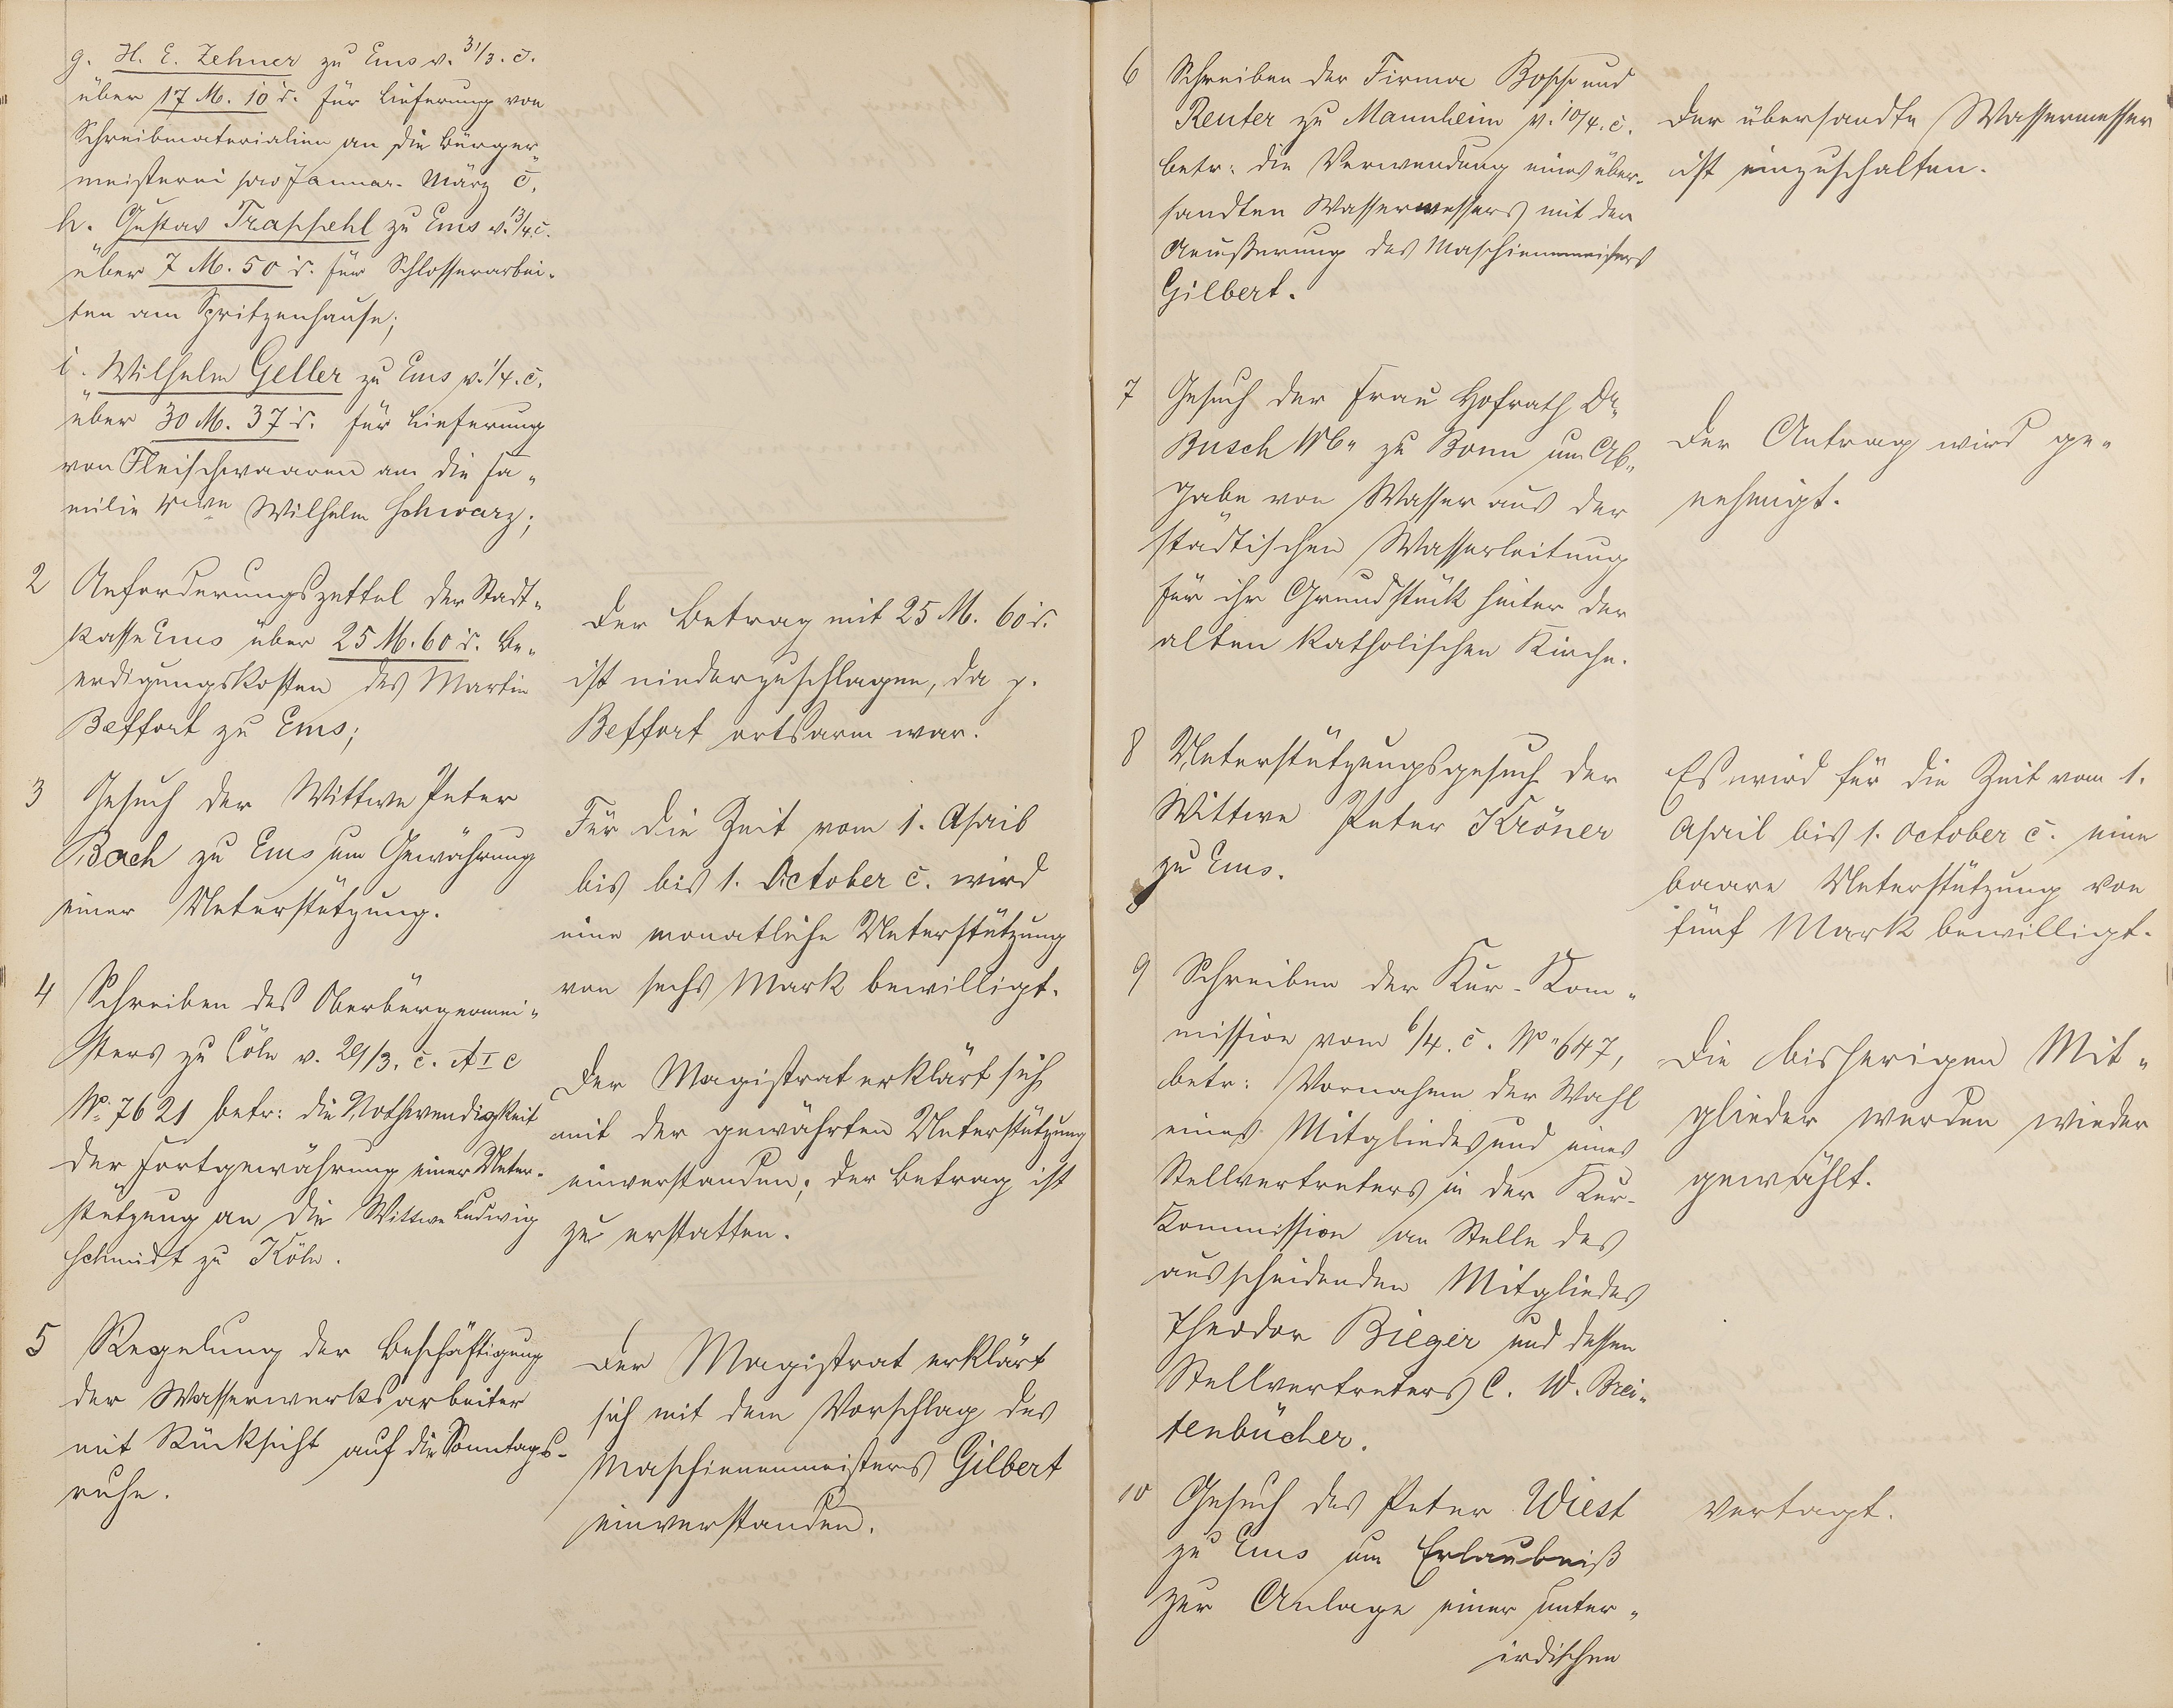 g. H. E. Zehner zu Ems v. 31/3. c.
über 17 M. 10 d. für Lieferung von
Schreibmaterialien an die Bürger„
meisterei pro Januar-März c.
h. Gustav Trappehl zu Ems v. 13/4. c.
über 7 M. 50 d. für Schlosserarbei„
ten am Spritzenhause;
i. Wilhelm Geller zu Ems v. 1/4. c.
über 30 M. 37 d. für Lieferung
von Fleischwaaren an die Fa„
milie Wilhelm Schwarz;
2 Anforderungszettel der Stadt„
kasse Ems über 25 M. 60 d. Be„
erdigungskosten des Martin
Beffort zu Ems;
Der Betrag mit 25 M. 60 d.
ist niederzuschlagen, da p.
Beffort ortsarm war.
3 Gesuch der Wittwe Peter
Bach zu Ems um Gewährung
einer Unterstützung.
Für die Zeit vom 1. April
bis bis 1. October c. wird
eine monatliche Unterstützung
von sechs Mark bewilligt.
4 Schreiben des Oberbürgermei„
sters zu Cöln v. 29/3. c. A I c
No. 7621 betr: die Nothwendigkeit
der Fortgewährung einer Unter„
stützung an die Wittwe Ludwig
Schmidt zu Köln.
Der Magistrat erklärt sich
mit der gewährten Unterstützung
einverstanden; der Betrag ist
zu erstatten.
5 Regelung der Beschäftigung
der Wasserwerksarbeiter
mit Rücksicht auf die Sonntags-
ruhe.
Der Magistrat erklärt
sich mit dem Vorschlag des
Maschienenmeisters Gilbert
einverstanden.
6 Schreiben der Firma Bopp und
Reuter zu Mannheim v. 10/4. c.
betr: die Verwendung eines über„
sandten Wassermessers mit der
Aeußerung des Maschienenmeisters
Gilbert.
Der übersandte Wassermesser
ist einzuschalten.
7 Gesuch der Frau Hofrath Dr.
Busch Wb. zu Bonn um Ab„
gabe von Wasser aus der
städtischen Wasserleitung
für ihr Grundstück hinter der
alten katholischen Kirche.
Der Antrag wird ge„
nehmigt.
8 Unterstützungsgesuch der
Wittwe Peter Kröner
zu Ems.
Es wird für die Zeit vom 1.
April bis 1. October c. eine
baare Unterstützung von
fünf Mark bewilligt.
9 Schreiben der Kur-Kom„
mission vom 6/4. c. No. 647,
betr: Vornahme der Wahl
eines Mitgliedes und eines
Stellvertreters in der Kur-
Kommission an Stelle des
ausscheidenden Mitgliedes
Theodor Bieger und dessen
Stellvertreters C. W. Brei„
tenbücher.
Die bisherigen Mit„
glieder werden wieder
gewählt.
10 Gesuch des Peter Wiest
zu Ems um Erlaubniß
zur Anlage einer unter„
irdischen
Vertagt.